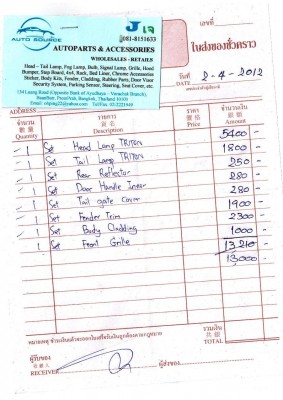 AUTO SOURCE
J 19
081-8151633
AUTOPARTS & ACCESSORIES
WHOLESALES - RETAILS
Head - Tail Lamp, Fog Lamp, Bulb, Signal Lamp, Grille, Hood
Bumper, Step Board, 4x4, Rack, Bed Liner, Chrome Accessories
Sticker, Body Kits, Fender, Cladding, Rubber Parts, Door Visor
Security System, Parking Sensor, Steering, Seat Cover, etc.
เลขที่
ใบส่งของชั่วคราว
วันที่
DATE 2-4-2012
ADDRESS
จำนวน รายการ ราคา จำนวนเงิน
Quantity Description Price Amount
1 Set Head Lamp TRITON 5400 -
1 Set Tail Lamp TRITON 1800 -
1 Set Rear Reflector 250 -
1 Set Door Handle Inner 280 -
1 Set Tail gate Cover 280 -
1 Set Fender Trim 1900 -
1 Set Body Cladding 2300 -
1 Set Front Grille 1000 -
13,210 -
13,000 -
รวมเงิน
TOTAL
ผู้รับของ
RECEIVER
ผู้ส่งของ